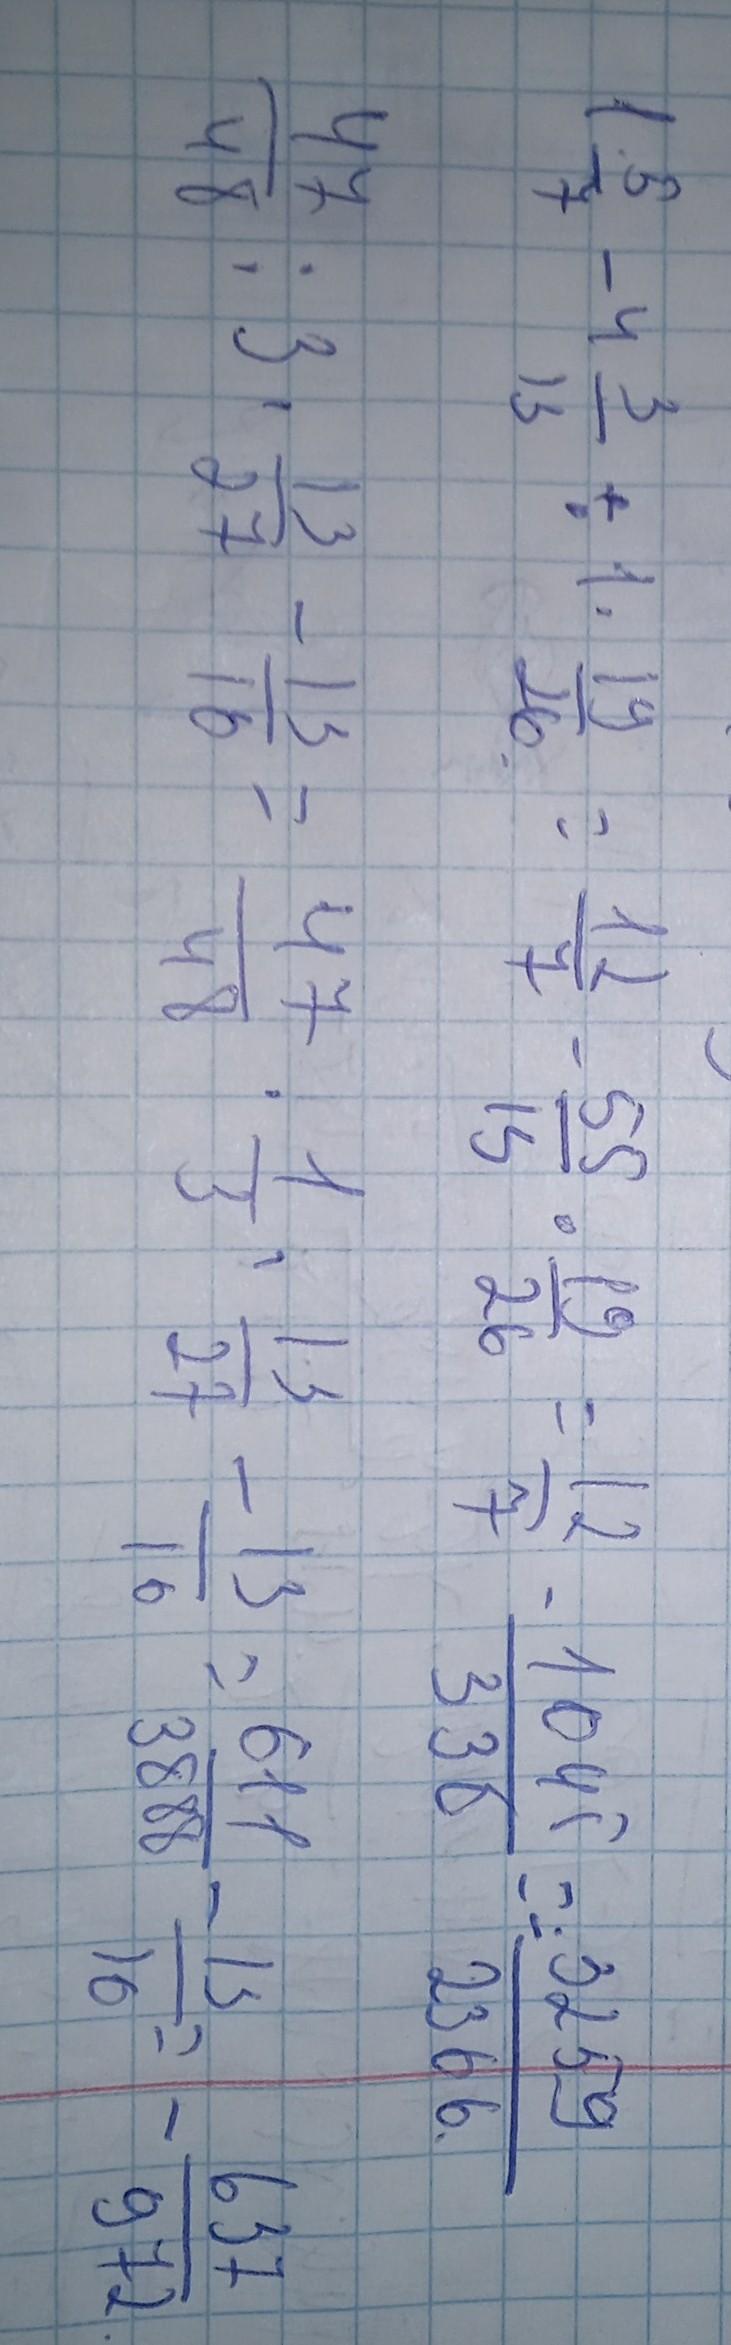 1 5/7 - 4 3/13 : 1 · 19/26 = 12/7 - 55/13 · 19/26 = 12/7 - 1045/338 = - 3259/2366
47/48 : 3 · 13/27 - 13/16 = 47/48 · 1/3 · 13/27 - 13/16 = 611/3888 - 13/16 = - 637/972